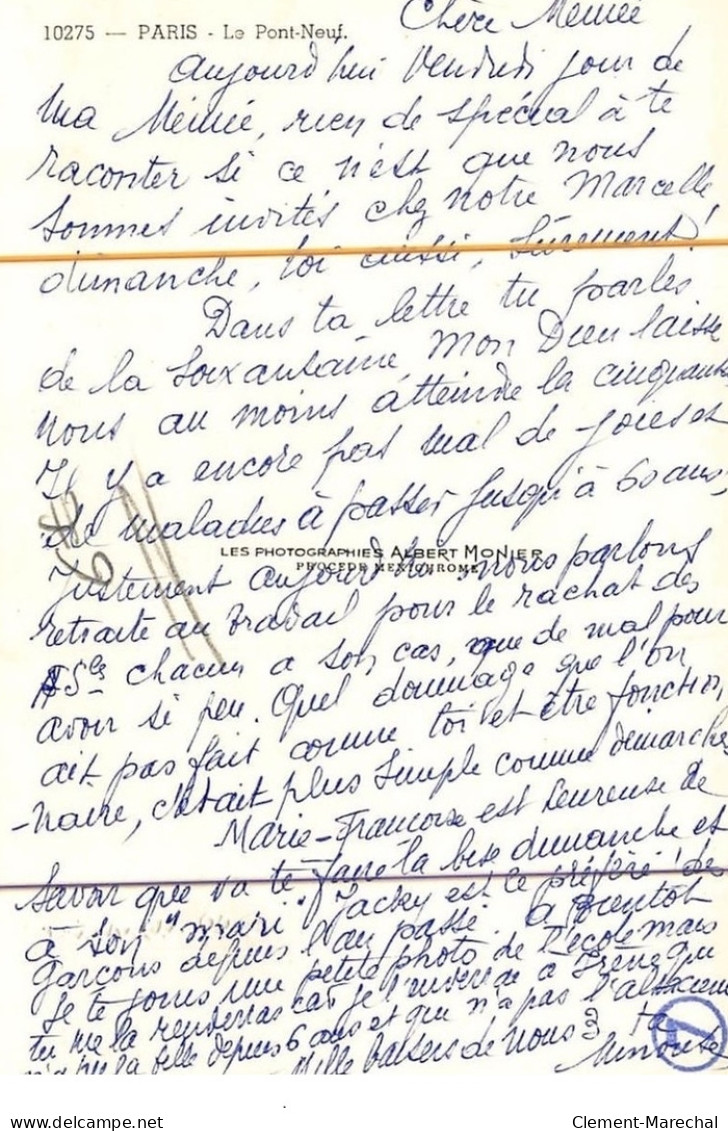 Chère Mémée
10275 — PARIS - Le Pont-Neuf.
Aujourd'hui Vendredi jour de
ma Mémée, rien de spécial à te
raconter si ce n'est que nous
sommes invités chez notre Marcelle
dimanche, toi aussi, sûrement!
Dans ta lettre tu parles
de la soixantaine, Mon Dieu laisse
nous au moins atteindre la cinquante
Il y a encore pas mal de joies et
de maladies à passer jusqu'à 60 ans,
LES PHOTOGRAPHIES ALBERT MONIER
PROCÉDÉ MEXICHROME
Justement aujourd'hui nous parlons
retraite au travail pour le rachat des
chacun a son cas, que de mal pour
avoir si peu. Quel dommage que l'on
ait pas fait comme toi et être fonction
-naire, c'était plus simple comme démarches
Marie-Françoise est heureuse de
savoir que va te faire la bise dimanche et
à son "mari". Jacky est le préféré de
garçons depuis l'an passé. A bientôt
Je te joins une petite photo de l'école mais
tu me la rendras car je l'enverrai à Irène qui
n'a pas vu la fille depuis 6 ans et qui n'a pas l'
Mille baisers de nous 3 ta
Minouse
Clement-Marechal